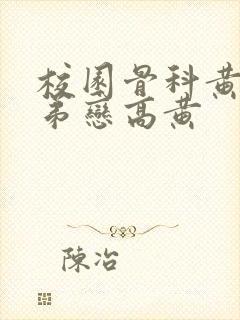 校園骨科黃
弟戀高黃
陳冶